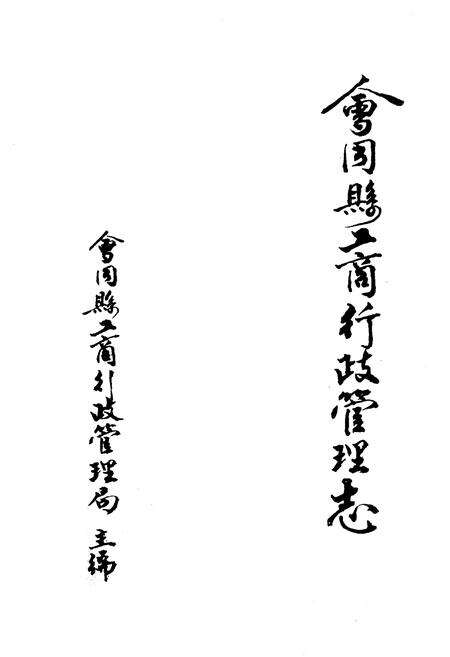 會同縣工商行政管理志
會同縣工商行政管理局 主編